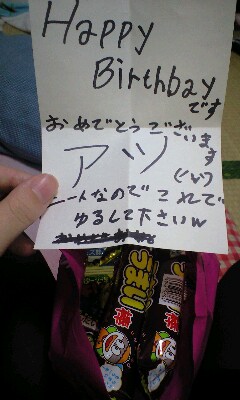 Happy
Birthbay
です
おめでとうございます
アツシ
(^v^)
ニートなのでこれで
ゆるして下さいw
うまい棒